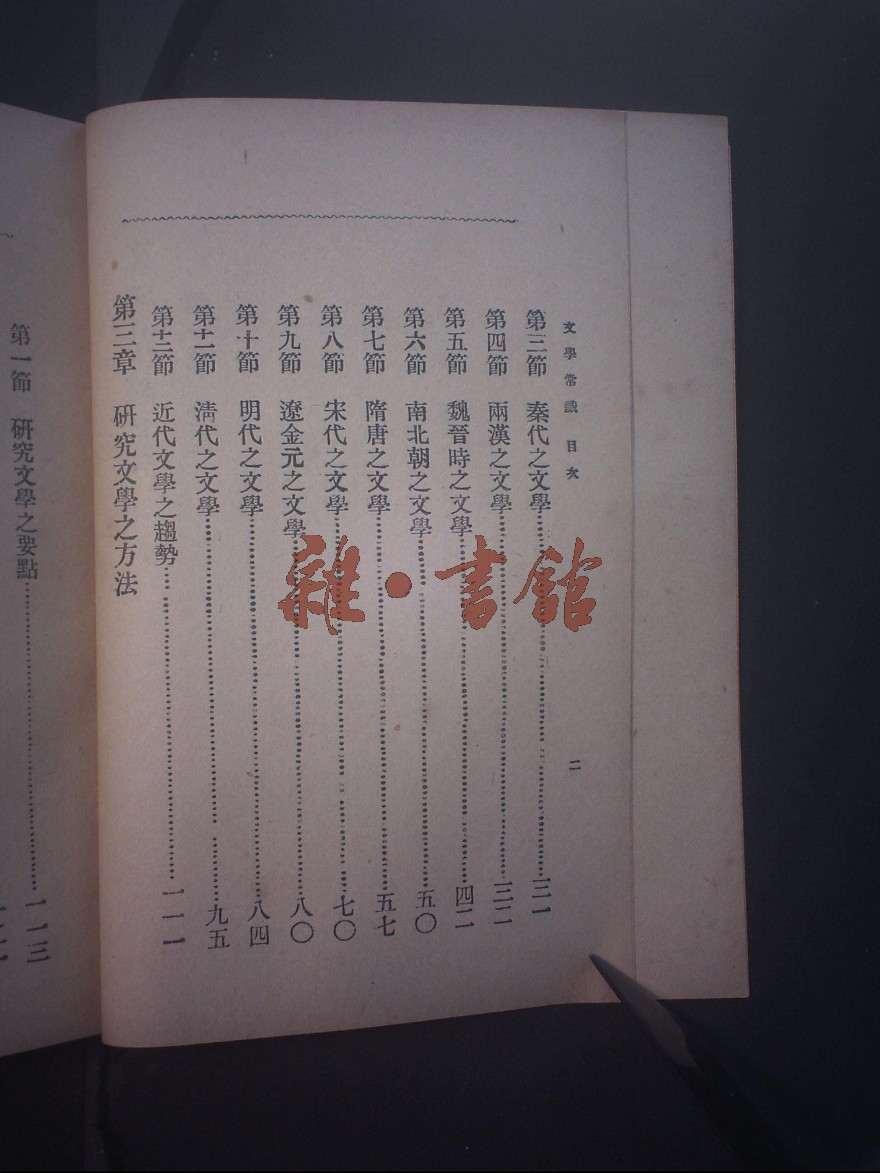 文學常識 目次
二
第三節 秦代之文學 三一
第四節 兩漢之文學 三二
第五節 魏晉時之文學 四二
第六節 南北朝之文學 五〇
第七節 隋唐之文學 五七
第八節 宋代之文學 七〇
第九節 遼金元之文學 八〇
第十節 明代之文學 八四
第十一節 清代之文學 九五
第十二節 近代文學之趨勢 一一一
第三章 研究文學之方法
第一節 研究文學之要點 一一三
雜·書館